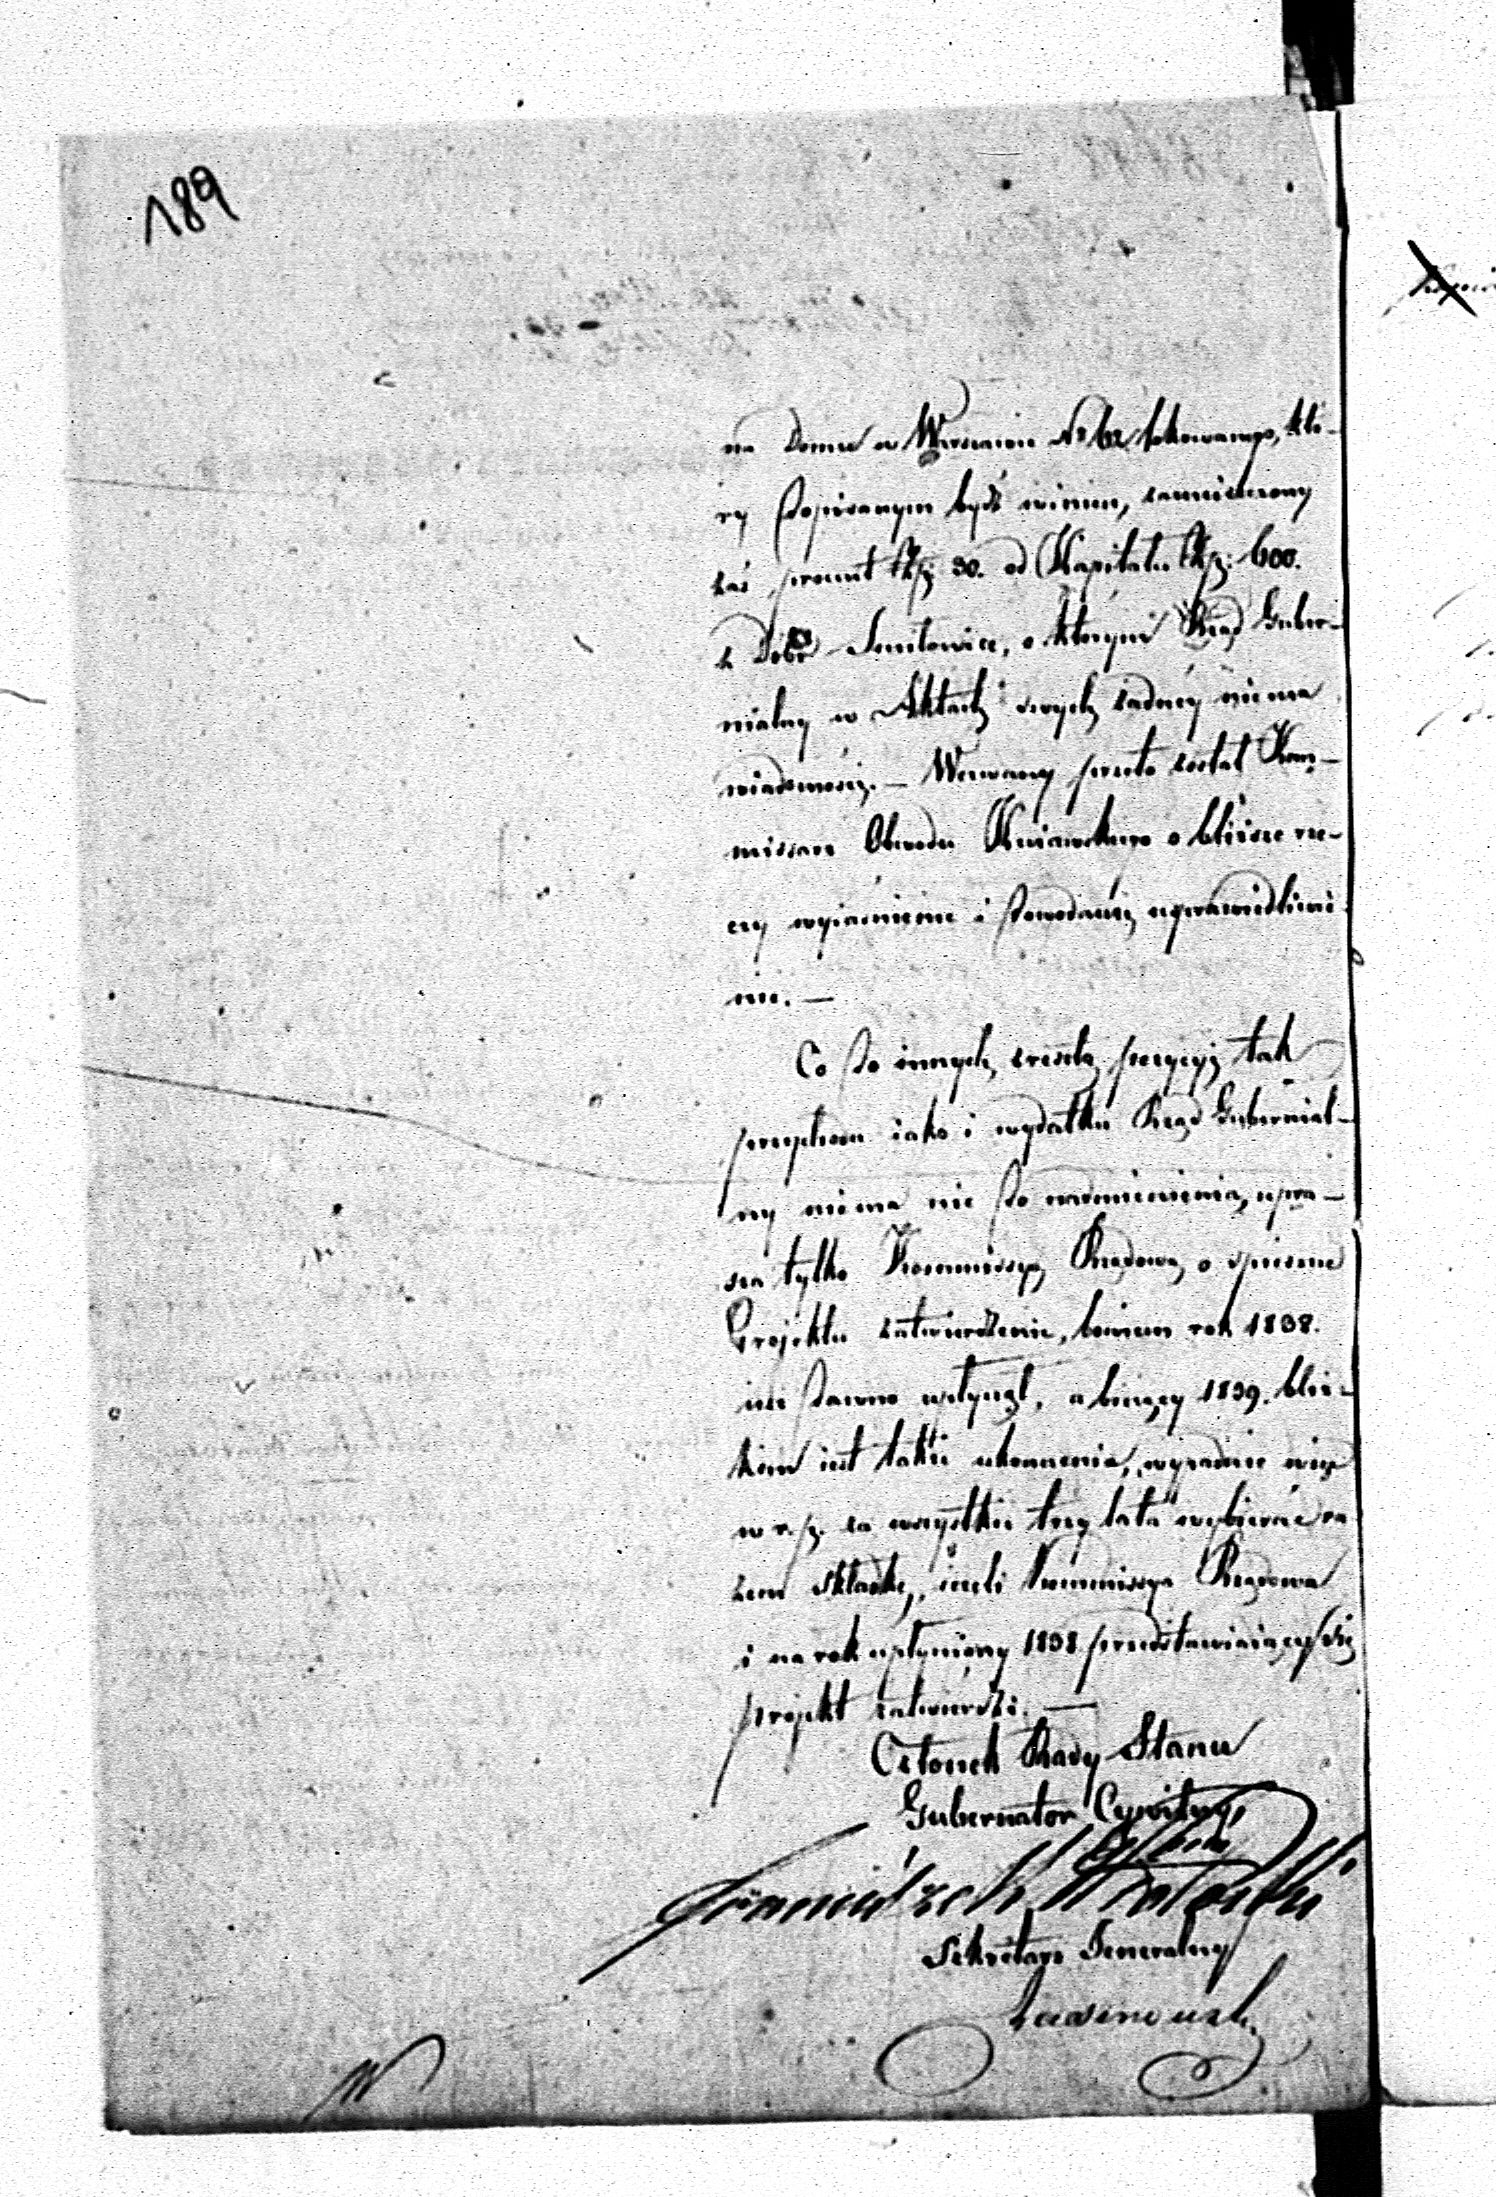 189
na Domu w Warszawie № 62 lokowanego, któ-
ry dopisanym bydź winien, zamieszczony
zaś procent Złp: 30. od Kapitału Złp: 600.
z Dóbr, o którym Rząd Guber-
nialny w Aktach swych żadney niema
wiadomości. — Wezwany przeto został Kom-
missarz Obwodu Kujawskiego o bliższe rze-
czy wyiaśnienie i dowodami usprawiedliwie-
nie. —
Co do innych zresztą pozycyi tak
przychodu iako i wydatku Rząd Gubernial-
ny niema nic do nadmienienia, upra-
sza tylko Kommissyę Rządową o spieszne
Projektu zatwierdzenie, bowiem rok 1838.
iuż dawno upłynął, a bieżący 1839. bliz-
kim iest także ukończenia, wypadnie więc
w r. p. za wszystkie trzy lata wybierać ra-
zem składkę, ieżeli Kommissya Rządowa
i na rok upłyniony 1838 przedstawiaiący się
projekt zatwierdzi. —
Członek Rady Stanu
Gubernator Cywilny
Sekretarz Generalny